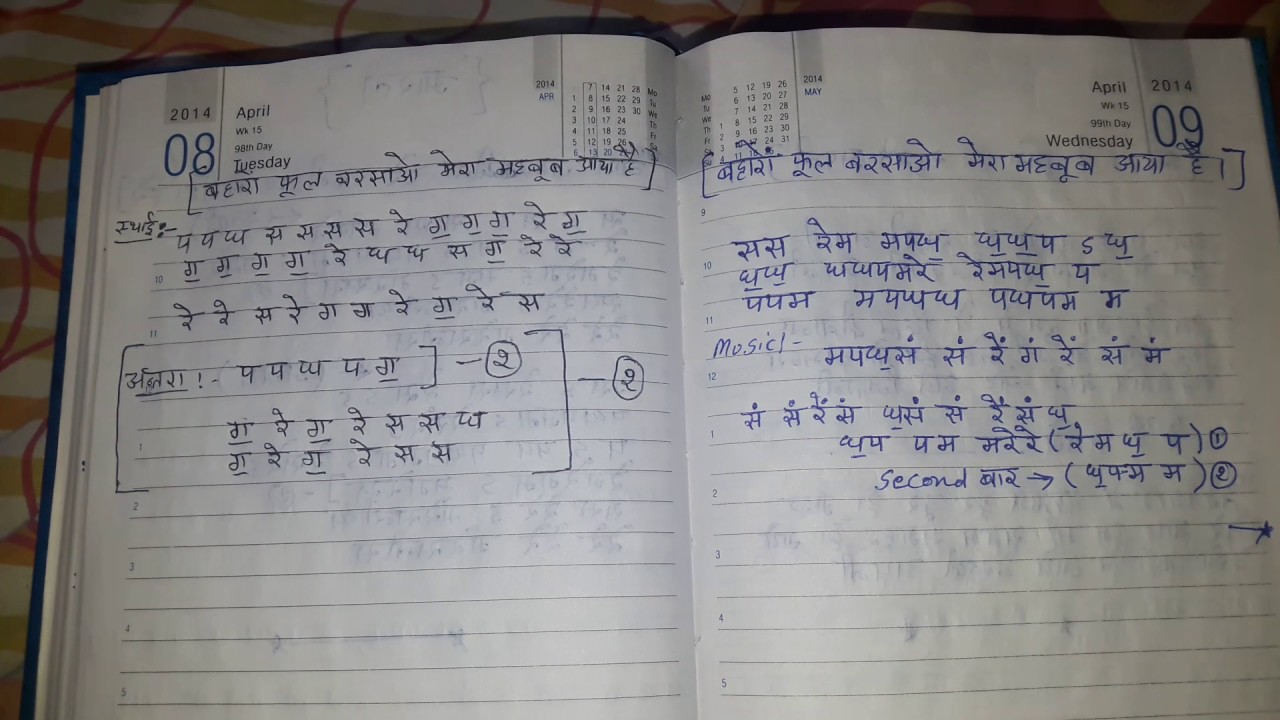 2014
08
April
Wk 15
98th Day
Tuesday
2014
APR
7 14 21 28 Mo
1 8 15 22 29 Tu
2 9 16 23 30 We
3 10 17 24 Th
4 11 18 25 Fr
5 12 19 26
6 13 20
[बहारो फूल बरसाओ मेरा महबूब आया है]
स्थाई:-
प प ध स स स स रे ग॒ ग॒ ग॒ रे ग॒
ग॒ ग॒ ग॒ ग॒ रे ध ध स ग॒ रे रे
रे रे स रे ग ग रे ग॒ रे स
अन्तरा!- प प ध प ग॒ ] - २
- २
ग॒ रे ग॒ रे स स ध
ग॒ रे ग॒ रे स स
10
11
1
2
3
4
5
2014
MAY
Mo 5 12 19 26
Tu 6 13 20 27
We 7 14 21 28
Th 1 8 15 22 29
Fr 2 9 16 23 30
3 10 17 24 31
4 11 18
April
Wk 15
99th Day
Wednesday
2014
09
[बहारो फूल बरसाओ मेरा महबूब आया है।]
9
सस रेम मपध॒ ध॒ध॒प ऽ ध॒
10
ध॒ध॒ धधपमरे रेमपध॒ प
पपम मपधध पधपम म
11
Music!- मपध॒सं सं रें गं रें सं मं
12
सं सं रेंसं ध॒सं सं रेंसंध॒
1
ध॒प पम मरेरे (रेमध॒ प) १
second बार → (ध॒पम म) २
2
→
3
4
5